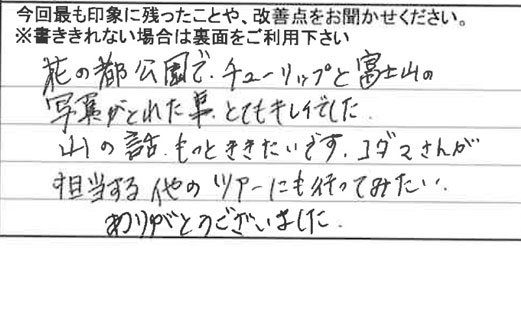 今回最も印象に残ったことや、改善点をお聞かせください。
※書ききれない場合は裏面をご利用下さい
花の都公園で、チューリップと富士山の
写真がとれた事、とてもキレイでした。
山の話、もっとききたいです。コダマさんが
担当する他のツアーにも行ってみたい。
ありがとうございました。